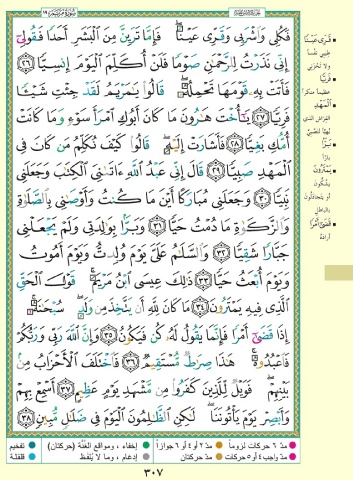 سُورَةُ مَرْيَم ١٩
فَكُلِى وَٱشْرَبِى وَقَرِّى عَيْنًا ۖ فَإِمَّا تَرَيِنَّ مِنَ ٱلْبَشَرِ أَحَدًا فَقُولِىٓ
إِنِّى نَذَرْتُ لِلرَّحْمَٰنِ صَوْمًا فَلَنْ أُكَلِّمَ ٱلْيَوْمَ إِنسِيًّا ٢٦
فَأَتَتْ بِهِۦ قَوْمَهَا تَحْمِلُهُۥ ۖ قَالُوا۟ يَٰمَرْيَمُ لَقَدْ جِئْتِ شَيْـًٔا
فَرِيًّا ٢٧ يَٰٓأُخْتَ هَٰرُونَ مَا كَانَ أَبُوكِ ٱمْرَأَ سَوْءٍ وَمَا كَانَتْ
أُمُّكِ بَغِيًّا ٢٨ فَأَشَارَتْ إِلَيْهِ ۖ قَالُوا۟ كَيْفَ نُكَلِّمُ مَن كَانَ فِى
ٱلْمَهْدِ صَبِيًّا ٢٩ قَالَ إِنِّى عَبْدُ ٱللَّهِ ءَاتَىٰنِىَ ٱلْكِتَٰبَ وَجَعَلَنِى
نَبِيًّا ٣٠ وَجَعَلَنِى مُبَارَكًا أَيْنَ مَا كُنتُ وَأَوْصَٰنِى بِٱلصَّلَوٰةِ
وَٱلزَّكَوٰةِ مَا دُمْتُ حَيًّا ٣١ وَبَرًّۢا بِوَٰلِدَتِى وَلَمْ يَجْعَلْنِى
جَبَّارًا شَقِيًّا ٣٢ وَٱلسَّلَٰمُ عَلَىَّ يَوْمَ وُلِدتُّ وَيَوْمَ أَمُوتُ
وَيَوْمَ أُبْعَثُ حَيًّا ٣٣ ذَٰلِكَ عِيسَى ٱبْنُ مَرْيَمَ ۚ قَوْلَ ٱلْحَقِّ
ٱلَّذِى فِيهِ يَمْتَرُونَ ٣٤ مَا كَانَ لِلَّهِ أَن يَتَّخِذَ مِن وَلَدٍ ۖ سُبْحَٰنَهُۥٓ ۚ
إِذَا قَضَىٰٓ أَمْرًا فَإِنَّمَا يَقُولُ لَهُۥ كُن فَيَكُونُ ٣٥ وَإِنَّ ٱللَّهَ رَبِّى وَرَبُّكُمْ
فَٱعْبُدُوهُ ۚ هَٰذَا صِرَٰطٌ مُّسْتَقِيمٌ ٣٦ فَٱخْتَلَفَ ٱلْأَحْزَابُ مِنۢ
بَيْنِهِمْ ۖ فَوَيْلٌ لِّلَّذِينَ كَفَرُوا۟ مِن مَّشْهَدِ يَوْمٍ عَظِيمٍ ٣٧ أَسْمِعْ بِهِمْ
وَأَبْصِرْ يَوْمَ يَأْتُونَنَا ۖ لَٰكِنِ ٱلظَّٰلِمُونَ ٱلْيَوْمَ فِى ضَلَٰلٍ مُّبِينٍ ٣٨
قَرِّي عَيْنًا
طيبي نفساً
ولا تحزني
فَرِيًّا
عظيماً منكراً
الْمَهْدِ
الفراش الذي
يُهيَّأُ للصبيِّ
بَرًّا
بارّاً
يَمْتَرُونَ
يشكّون
أو يتجادلون
بالباطل
قَضَى أَمْرًا
أراده
مدّ ٦ حركات لزوماً مدّ ٢ أو ٤ أو ٦ جوازاً إخفاء، ومواقع الغنّة (حركتان) تفخيم
مدّ واجب ٤ أو ٥ حركات مدّ حركتان إدغام، وما لا يُلفَظ قلقلة
٣٠٧